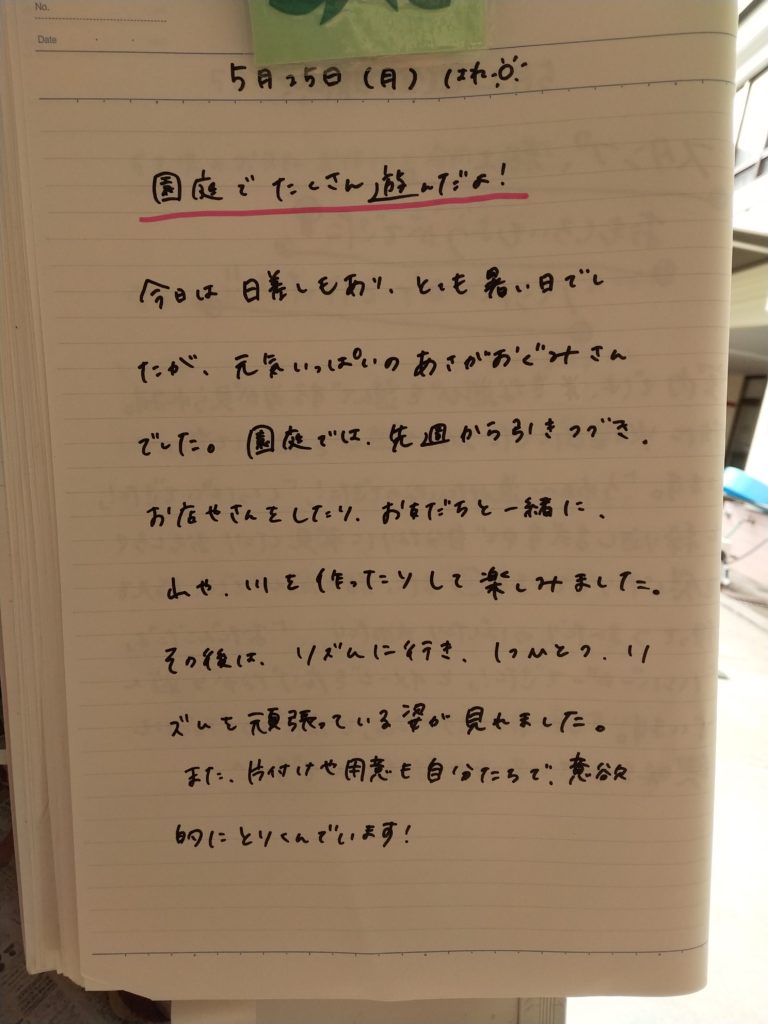 No.
Date
5月25日(月) はれ
園庭でたくさん遊んだよ!
今日は日差しもあり、とても暑い日でし
たが、元気いっぱいのあさがおぐみさん
でした。園庭では、先週から引きつづき、
お店やさんをしたり、お友だちと一緒に、
山や、川を作ったりして楽しみました。
その後は、リズムに行き、1つ1つ、リ
ズムを頑張っている姿が見れました。
また、片付けや用意も自分たちで、意欲
的にとりくんでいます!